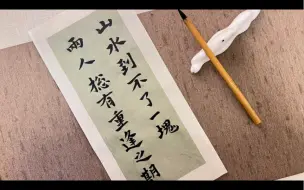 山水到不了一塊
兩人總有重逢之期